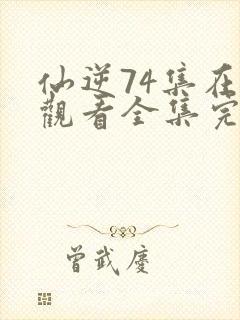 仙逆74集在
觀看全集完
曾武慶